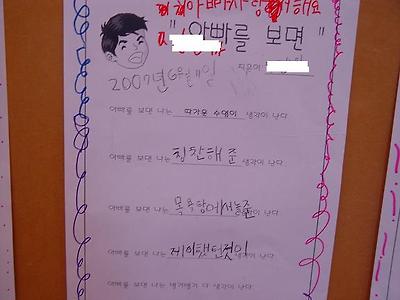 아빠사랑해요
" 아빠를 보면 "
지은이
2007년 6월 11일
아빠를 보면 나는 따가운 수염이 생각이 난다
아빠를 보면 나는 칭찬해 준 생각이 난다
아빠를 보면 나는 목욕탕에서놀준 생각이 난다
아빠를 보면 나는 생각이 난다
아빠를 보면 나는 생각이 난다